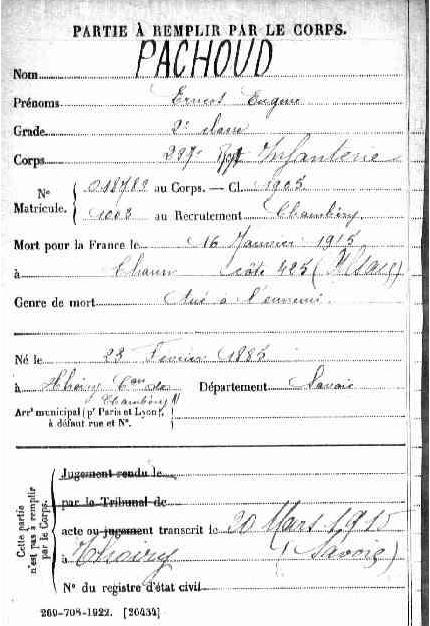 PARTIE À REMPLIR PAR LE CORPS.
Nom PACHOUD
Prénoms Ernest Eugène
Grade 2e classe
Corps 297e Rgt Infanterie
No Matricule. { 018782 au Corps. — Cl. 1905
1003 au Recrutement Chambéry
Mort pour la France le 16 Janvier 1915
à Thann côte 425 (Alsace)
Genre de mort Tué à l'ennemi
Né le 23 Février 1885
à Thoiry Con de Chambéry Département Savoie
Arrt municipal (pr Paris et Lyon),
à défaut rue et No.
Cette partie n'est pas à remplir par le Corps.
Jugement rendu le
par le Tribunal de
acte ou jugement transcrit le 20 Mars 1915
à Thoiry (Savoie)
No du registre d'état civil
269-708-1922. [26434]